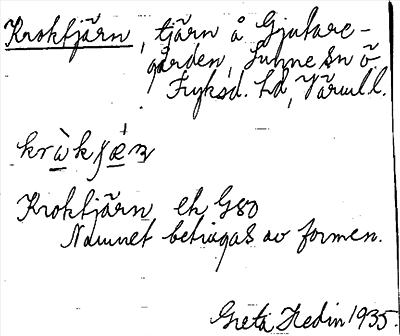 Kroktjärn, tjärn å Gjutare-
gården, Sunne sn Ö
Fryksd. hd, Värmll.
kròkjæ̀ɳ
Kroktjärn ek G80
Namnet betingas av formen.
Greta Hedin 1935.